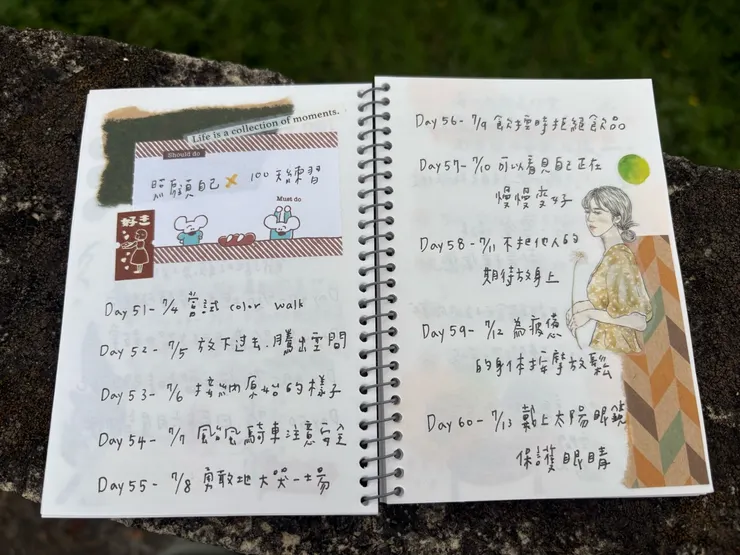 Life is a collection of moments.
Should do
照顧自己 x 100天練習
Must do
好き
Day 51 - 7/4 嘗試 color walk
Day 52 - 7/5 放下過去.騰出空間
Day 53 - 7/6 接納原始的樣子
Day 54 - 7/7 颱風騎車注意安全
Day 55 - 7/8 勇敢地大哭一場
Day 56 - 7/9 飲控時拒絕飲品
Day 57 - 7/10 可以看見自己正在
慢慢変好
Day 58 - 7/11 不把他人的
期待放身上
Day 59 - 7/12 為疲憊
的身体按摩放鬆
Day 60 - 7/13 戴上太陽眼鏡
保護眼睛